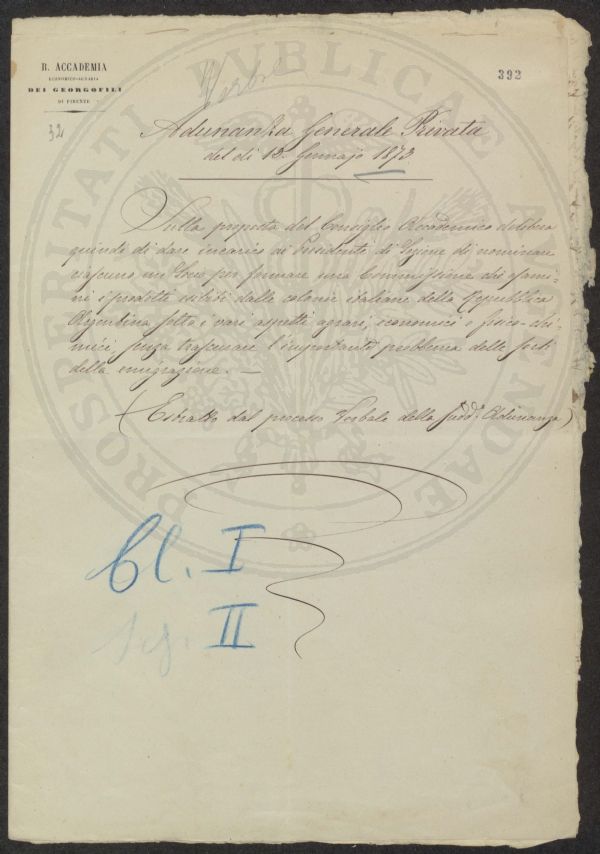 R. ACCADEMIA
ECONOMICO-AGRARIA
DEI GEORGOFILI
DI FIRENZE
392
32
Verbale
Adunanza Generale Privata
del dì 12. Gennajo 1873
Sulla proposta del Consiglio Accademico delibera
quindi di dare incarico ai Presidenti di Sezione di nominare
ciascuno un Socio per formare una Commissione che esami-
ni i prodotti esibiti dalle colonie italiane della Repubblica
Argentina sotto i vari aspetti agrari, economici e fisico-chi-
mici senza trascurare l'importante problema delle sorti
della emigrazione. —
(Estratto dal processo Verbale della sudd.a Adunanza)
Cl. I
Seg. II
PROSPERITATI PUBLICAE AUGENDAE